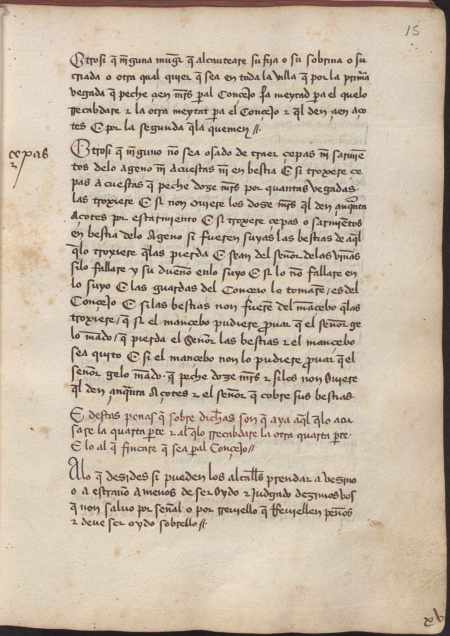 15
Otrosi q̃ ninguna muger q̃ alcauetare su fija o su sobrina o su
criada o otra qual quier q̃ sea en toda la villa q̃ por la prim̃a
vegada q̃ peche çen mr̃s p̃al Conçejo la meytad pa el quelo
rrecabdare ⁊ la otra meytat pa el Conçejo ⁊ q̃l den çen aço
tes E por la segunda q̃la quemen //.
cepas
Otrosi q̃ ninguno nõ sea osado de traer çepas nĩ sarmiẽ
tos delo ageno nĩ acuestas nĩ en bestia E si troxere çe
pas acuestas q̃ peche doze mr̃s por quantas vegadas
las troxiere E si non ouiere los doze mr̃s q̃l den
açotes por escarmiento E si troxere çepas o sarmiẽtos
en bestia delo ageno si fueren suyas las bestias de aq̃l
q̃lo troxiere q̃las pierda E sean del señor delas viñas
silo fallare y su dueño enlo suyo E si lo nõ fallare en
lo suyo E las guardas del Conçejo lo tomarẽ / es del
Conçejo E silas bestias non fuerẽ del mãçebo q̃las
troxiere / q̃ si el mançebo pudiere prouar q̃ el señor ge
lo mãdo / q̃ pierda el señor las bestias ⁊ el mançebo
sea quito E si el mançebo non lo pudiere prouar q̃ el
señor gelo mãdo . q̃ peche doze mr̃s ⁊ silos non ouiere
q̃l den açotes ⁊ el señor q̃ cobre sus bestias
E destas penas q̃ sobre dichas son q̃ aya aq̃l q̃lo acu
sare la quarta p̃te ⁊ al q̃lo rrecabdare la otra quarta p̃te .
E lo al q̃ fincare q̃ sea p̃al Conçejo //
Alo q̃ desides si pueden los alcall̃s prendar a vesino
o a estraño a menos de ser oydo ⁊ judgado dezimos vos
q̃ non saluo por señal o por rreuiello q̃ rreuiellen peños
⁊ deue ser oydo sobrello //.
xb